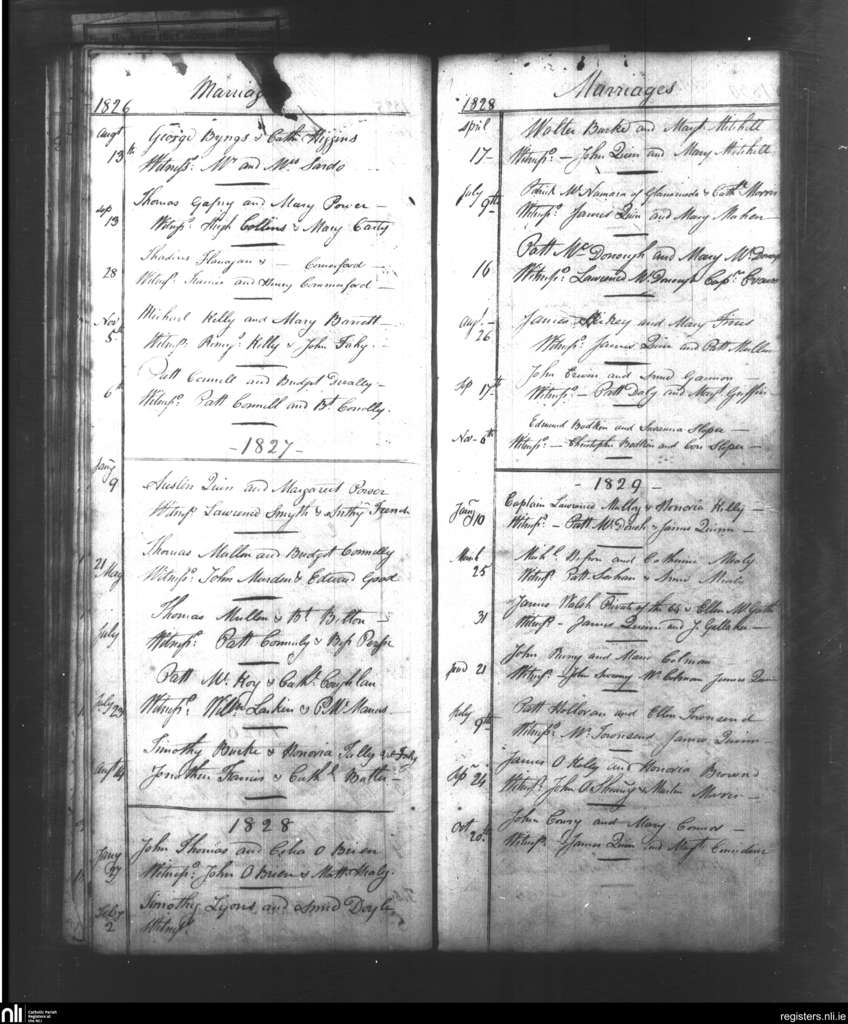 1826 Marriag
Augt 13th George Byngs & Cath Higgins
Witness: Mr and Mrs Sardo
Sep 13 Thomas Gafny and Mary Power —
Witness: Hugh Collins & Mary Carty
28 Thadius Flanagan & — Comerford —
Witness: Francis and Henry Commerford —
Novr 5th Michael Kelly and Mary Barrett —
Witness: Kelly & John Fahy.
6th Patt Connell and Budget —
Witness: Patt Connell and Bt Conolly.
- 1827 -
Jany 9 Austin Quin and Margaret Power
Witness Lawrence Smyth & Anthy French
21 May Thomas Mullin and Budget Connolly
Witness: John & Edward Good
July Thomas Mullen & Bt Bitton —
Witness: Patt &
July 23 Patt Mc Koy & Cath Coghlan
Witness: Willm Larkin & P. Mc Manus —
Augt 14 Timothy Burke & Honoria Tully
Jonathan Francis & Cath Butler —
1828
Jany 27 John Thomas and Celia O Brien
Witness: John O Brien & Matt Healy.
Feby 2 Timothy Lyons and Doyle
Witness
1828 Marriages
April 17 — Walter Burke and Margt Mitchill
Witness: — John Quin and Mary Mitchill
July 9th Patrick Mc Namara of & Cathe Morris
Witness: James Quin and Mary Mahon —
16 Patt Mc Donough and Mary Mc Donough
Witness: Lawrence Mc Donough Capn Evans
Augt. — 26 James Hickey and Mary
Witness: James Quin and Patt Mullin
Sep 17th John Erwin and Gannon —
Witness: — Patt Daly and Margt Griffin
Nov — 6th Edmund Bodkin and Susanna Sloper —
Witness: — Christopher Bodkin and Sloper —
- 1829 -
Jany 10 Captain Lawrence Malloy & Honoria Kelly —
Witness: — Patt Mc & James Quinn —
March 25 and Catherine Mealy
Witness: Patt &
31 James Walsh Private of the 64 & Ellen Mc
Witness — James Quinn and J. Gallaher —
21 John and Colman
Witness: John Mr Coleman James Quin
July 9th Patt Holloran and Ellen Townsend
Witness: Mr Townsend James Quinn
24 James O Kelly and Honoria Browne
Witness: John O & Martin Morris —
Oct 20th John Conry and Mary Connor —
Witness: James Quin and Margt
nli
Catholic Parish
Registers at
the NLI
registers.nli.ie